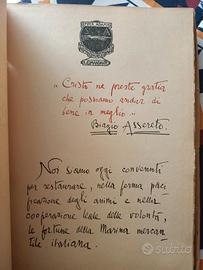 " Cristo ne preste gratia
che possiamo andar di
bene in meglio "
Biagio Assereto.
Noi siamo oggi convenuti
per restaurare, nella forma paci
ficazione degli animi e nella
cooperazione leale delle volontà,
le fortune della Marina mercan
tile italiana.
subito